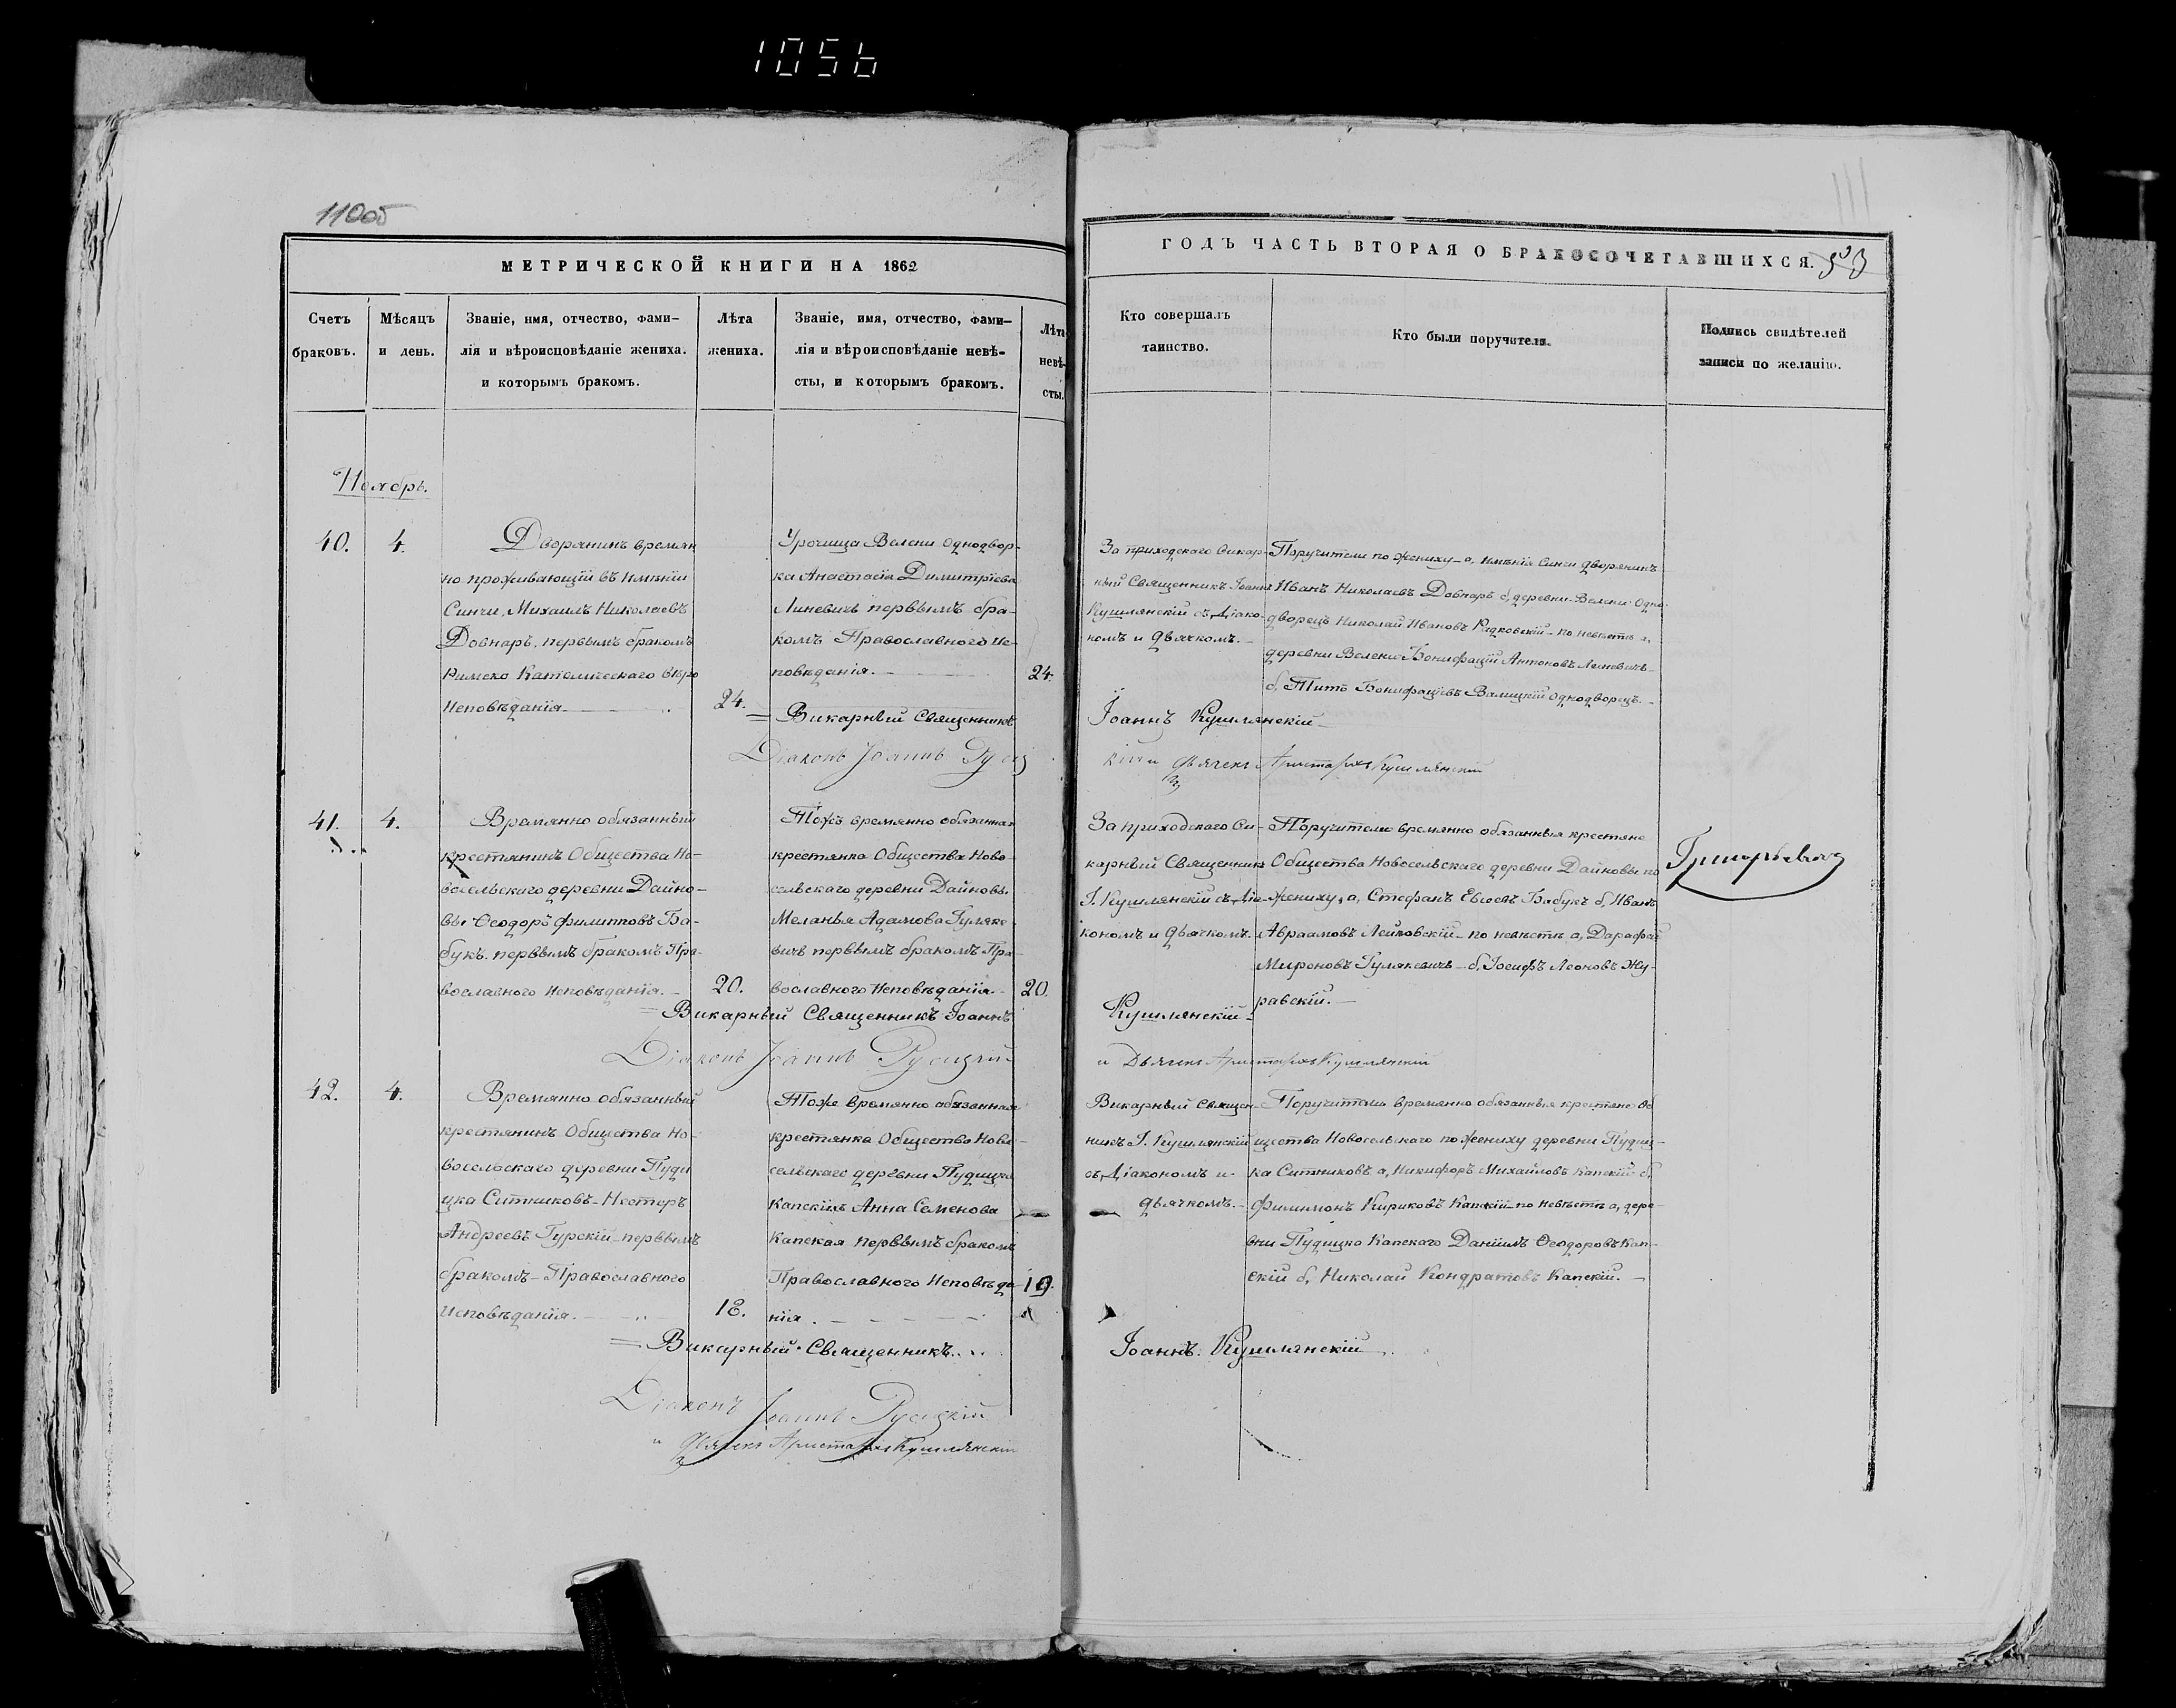 1056
110об
111
МЕТРИЧЕСКОЙ КНИГИ НА 1862
Счетъ браковъ.
Мѣсяцъ и день.
Званіе, имя, отчество, фами-
лія и вѣроисповѣданіе жениха.
и которымъ бракомъ.
Лѣта жениха.
Званіе, имя, отчество, фами-
лія и вѣроисповѣданіе невѣ-
сты, и которымъ бракомъ.
Лѣта
невѣ-
сты.
ГОДЪ ЧАСТЬ ВТОРАЯ О БРАКОСОЧЕТАВШИХСЯ.
Кто совершалъ
таинство.
Кто были поручители.
Подпись свидѣтелей
записи по желанію.
Ноябрь.
40.
4.
Дворянинъ времян
но проживающій въ имѣніи
Синчи, Михаилъ Николаевъ
Довнаръ, первымъ бракомъ
Римско Католическаго вѣро
Исповѣданія.
24.
Урочища Велени однодвор-
ка Анастасія Димитріева
Линевичъ первымъ бра-
комъ Православнаго Ис-
повѣданія.
24.
За приходскаго Викар-
ный Священникъ Іоаннъ
Кушлянскій съ Діако-
номъ и Дьячкомъ.
Поручители по жениху а, имѣнія Синчи дворянинъ
Иванъ Николаевъ Довнаръ б, деревни Велени Одно-
дворецъ Николай Ивановъ Радковскій по невѣстѣ а,
деревни Велени Бонифацій Антоновъ Линевичъ
б, Титъ Бонифаціевъ Валицкій однодворецъ.
Викарный Священникъ Іоаннъ Кушлянскій
Діаконъ Іоаннъ Русицкій и Дьячекъ Аристархъ Кушлянскій
41.
4.
Времянно обязанный
крестьянинъ Общества Но-
восельскаго деревни Дайно-
вы Ѳеодоръ Филиповъ Ба-
букъ первымъ бракомъ Пра-
вославного Исповѣданія.
20.
Тожъ времянно обязанная
крестьянка Общества Ново-
сельскаго деревни Дайновы
Меланья Адамова Гуляке-
вичъ первымъ бракомъ Пра-
вославного Исповѣданія.
20.
За приходскаго Ви-
карный Священникъ
І. Кушлянскій съ Діа-
кономъ и Дьячкомъ.
Поручители времянно обязанныя крестьяне
Общества Новосельскаго деревни Дайновы по
жениху а, Стефанъ Евсѣевъ Бабукъ б, Иванъ
Авраамовъ Лейковскій по невѣстѣ а, Дарафей
Мироновъ Гулякевичъ б, Іосифъ Леоновъ Жу-
равскій.
Викарный Священникъ Іоаннъ Кушлянскій
Діаконъ Іоаннъ Русицкій и Дьячекъ Аристархъ Кушлянскій
42.
4.
Времянно обязанный
крестьянинъ Общества Но-
восельскаго деревни Пуди
цка Ситниковъ Несторъ
Андреевъ Гурскій первымъ
бракомъ Православного
Исповѣданія.
18.
Тоже времянно обязанная
крестьянка Общества Ново-
сельскаго деревни Пудицка
Капскихъ Анна Семенова
Капская первымъ бракомъ
Православного Исповѣда-
нія.
19.
Викарный Священ-
никъ І. Кушлянскій
съ Діакономъ и
Дьячкомъ.
Поручители времянно обязанныя крестьяне Об
щества Новосельскаго по жениху деревни Пудиц-
ка Ситниковъ а, Никифоръ Михайловъ Капскій б,
Филимонъ Кириковъ Капскій по невѣстѣ а, дере-
вни Пудицка Капскаго Даніилъ Ѳеодоровъ Кап-
скій б, Николай Кондратовъ Капскій.
Викарный Священникъ Іоаннъ Кушлянскій
Діаконъ Іоаннъ Русицкій
и Дьячекъ Аристархъ Кушлянскій